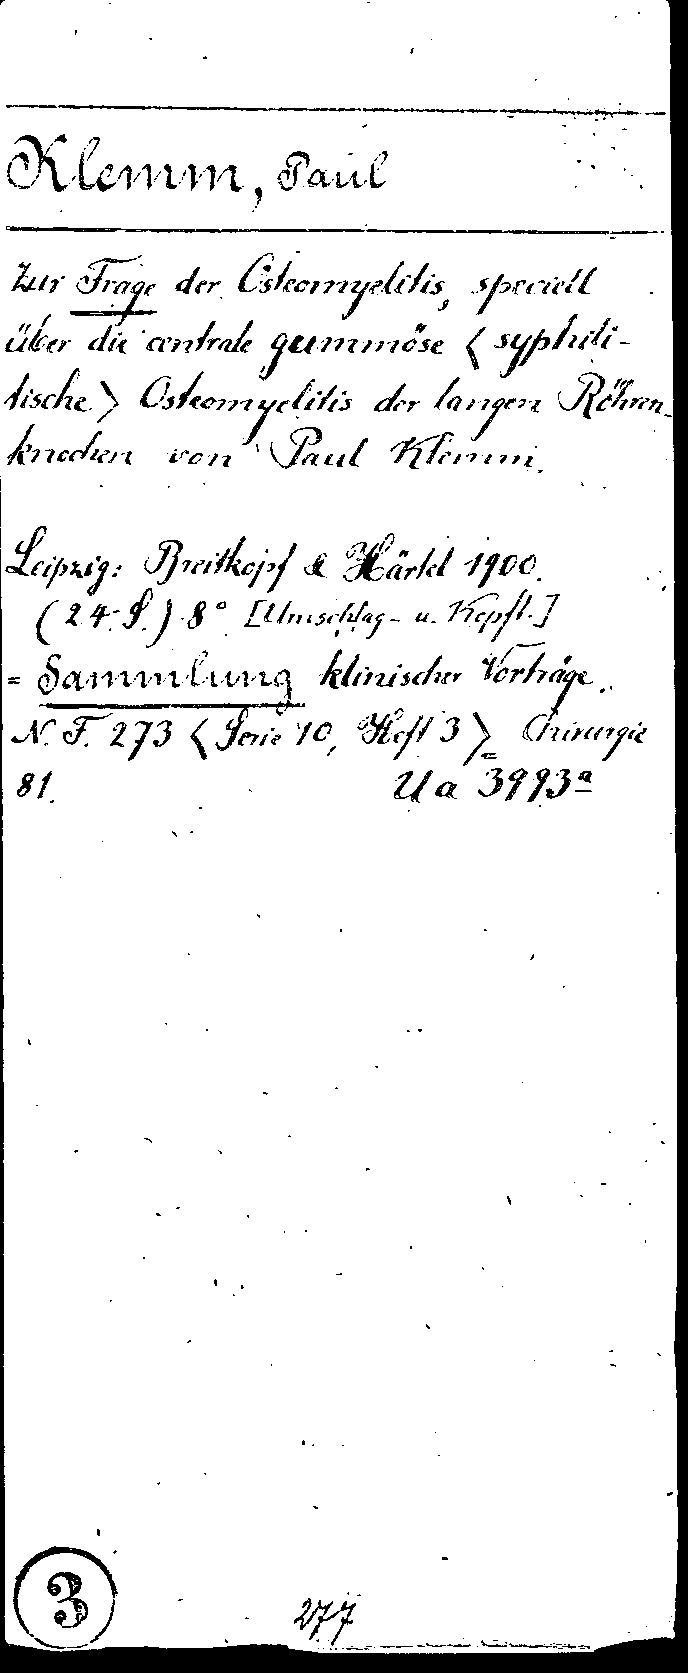 Klemm, Paul
Zur Frage der Osteomyelitis, speciell
über die centrale gummöse < syphili-
tische > Osteomyelitis der langen Röhren-
knochen von Paul Klemm.
Leipzig: Breitkopf & Härtel 1900.
(24. S.) 8° [Umschlag- u. Kopft.]
= Sammlung klinischer Vorträge.
N. F. 273 < Serie 10, Heft 3 > = Chirurgie
81. Ua 3993ª
3
277